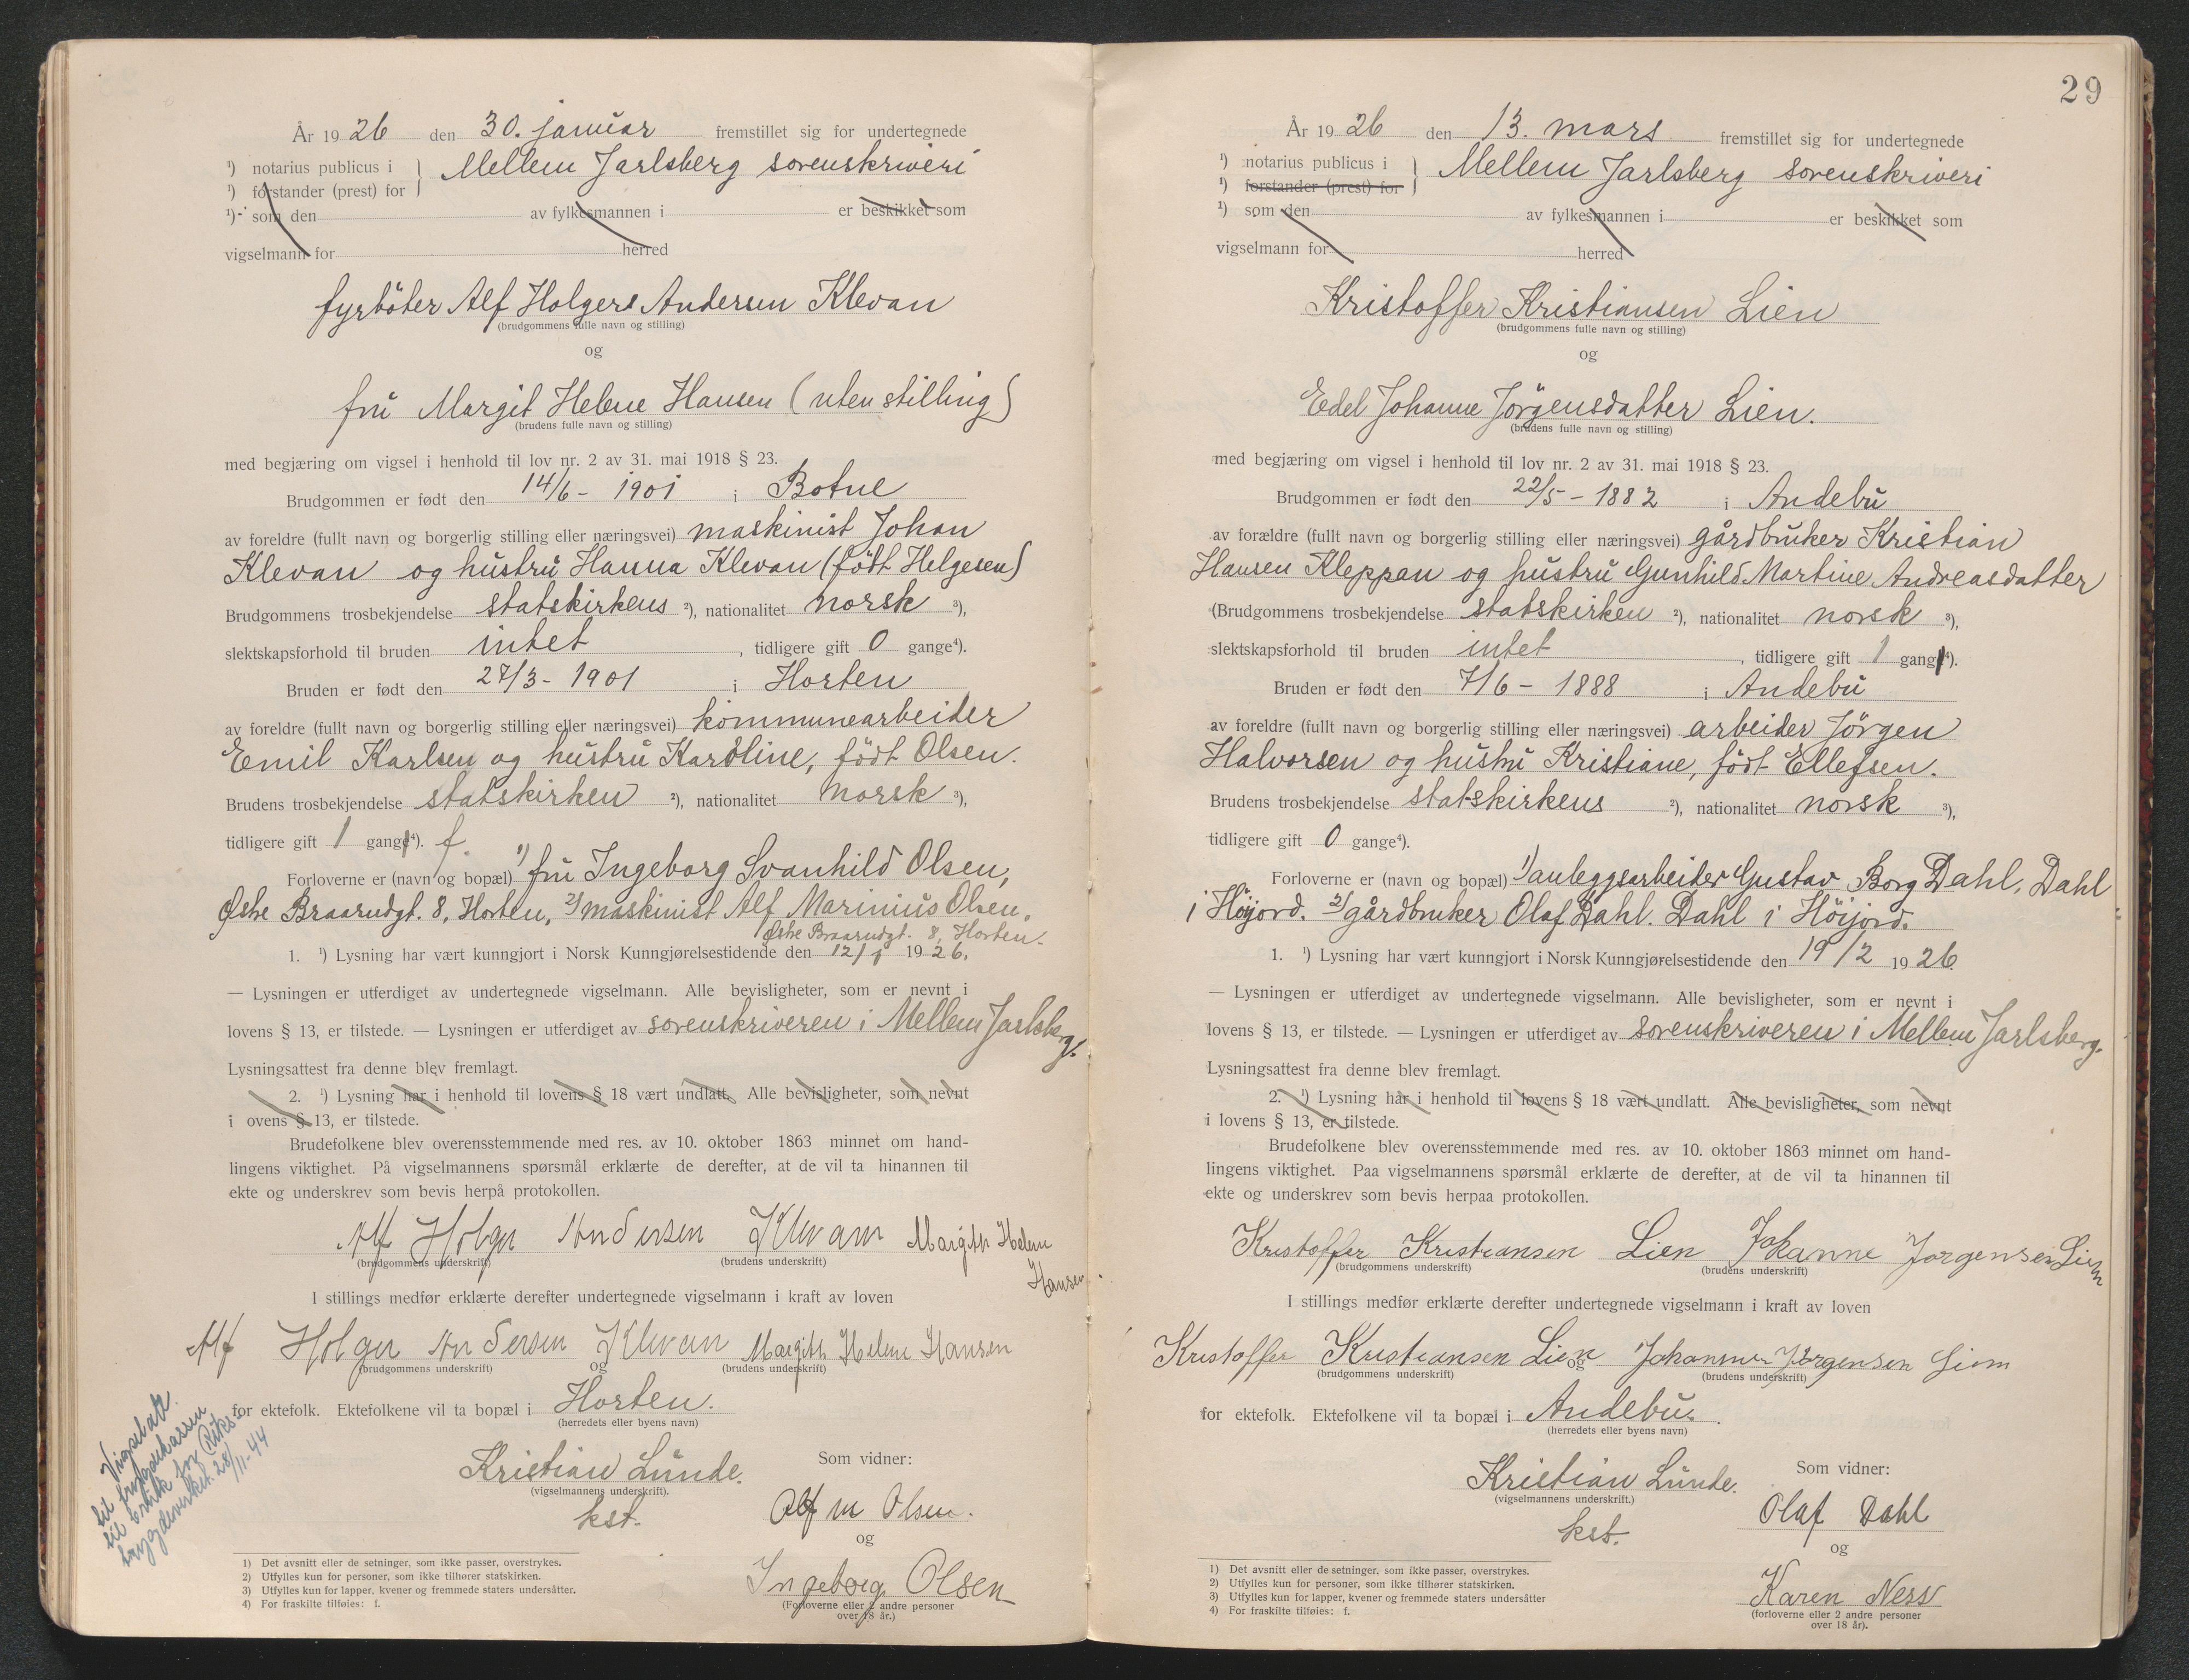 År 1926 den 30. januar fremstillet sig for undertegnede
¹) notarius publicus i } Mellem Jarlsberg sorenskriveri
¹) forstander (prest) for
¹) som den av fylkesmannen i er beskikket som
vigselmann for herred
fyrbøter Alf Holger Andersen Klevan
(brudgommens fulle navn og stilling)
og
fru Margit Helene Hansen (uten stilling)
(brudens fulle navn og stilling)
med begjæring om vigsel i henhold til lov nr. 2 av 31. mai 1918 § 23.
Brudgommen er født den 14/6 - 1901 i Botne
av foreldre (fullt navn og borgerlig stilling eller næringsvei) maskinist Johan
Klevan og hustru Hanna Klevan (født Helgesen)
Brudgommens trosbekjendelse statskirkens ²), nationalitet norsk ³),
slektskapsforhold til bruden intet, tidligere gift 0 gange⁴).
Bruden er født den 27/3 - 1901 i Horten
av foreldre (fullt navn og borgerlig stilling eller næringsvei) kommunearbeider
Emil Karlsen og hustru Karoline, født Olsen.
Brudens trosbekjendelse statskirken ²), nationalitet norsk ³),
tidligere gift 1 gang⁴). f.
Forloverne er (navn og bopæl) 1) fru Ingeborg Svanhild Olsen,
Østre Braarudgt. 8, Horten, 2) maskinist Alf Marinius Olsen,
Østre Braarudgt. 8, Horten.
1. ¹) Lysning har vært kunngjort i Norsk Kunngjørelsestidende den 12/1 1926.
— Lysningen er utferdiget av undertegnede vigselmann. Alle bevisligheter, som er nevnt i
lovens § 13, er tilstede. — Lysningen er utferdiget av sorenskriveren i Mellem Jarlsberg.
Lysningsattest fra denne blev fremlagt.
2. ¹) Lysning har i henhold til lovens § 18 vært undlatt. Alle bevisligheter, som nevnt
i ovens § 13, er tilstede.
Brudefolkene blev overensstemmende med res. av 10. oktober 1863 minnet om hand-
lingens viktighet. På vigselmannens spørsmål erklærte de derefter, at de vil ta hinannen til
ekte og underskrev som bevis herpå protokollen.
Alf Holger Andersen Klevan Margith Helene
Hansen
(brudgommens underskrift) (brudens underskrift)
I stillings medfør erklærte derefter undertegnede vigselmann i kraft av loven
Alf Holger Andersen Klevan Margith Helene Hansen
(brudgommens underskrift) og (brudens underskrift)
for ektefolk. Ektefolkene vil ta bopæl i Horten.
(herredets eller byens navn)
Kristian Lunde.
(vigselmannens underskrift).
kst.
Som vidner:
Alf M Olsen.
og
Ingeborg Olsen
(Forloverne eller 2 andre personer
over 18 år.)
Vigselatt.
til
til bruk for Riks-
28/11-44
1) Det avsnitt eller de setninger, som ikke passer, overstrykes.
2) Utfylles kun for personer, som ikke tilhører statskirken.
3) Utfylles kun for lapper, kvener og fremmede staters undersåtter.
4) For fraskilte tilføies: f.
29
År 1926 den 13. mars fremstillet sig for undertegnede
¹) notarius publicus i } Mellem Jarlsberg sorenskriveri
¹) forstander (prest) for
¹) som den av fylkesmannen i er beskikket som
vigselmann for herred
Kristoffer Kristiansen Lien
(brudgommens fulle navn og stilling)
og
Edel Johanne Jørgensdatter Lien.
(brudens fulle navn og stilling)
med begjæring om vigsel i henhold til lov nr. 2 av 31. mai 1918 § 23.
Brudgommen er født den 22/5 - 1882 i Andebu
av forældre (fullt navn og borgerlig stilling eller næringsvei) gårdbruker Kristian
Hansen Kleppan og hustru Gunhild Martine Andreasdatter
(Brudgommens trosbekjendelse statskirken ²), nationalitet norsk ³),
slektskapsforhold til bruden intet, tidligere gift 1 gang⁴).
Bruden er født den 7/6 - 1888 i Andebu
av foreldre (fullt navn og borgerlig stilling eller næringsvei) arbeider Jørgen
Halvorsen og hustru Kristiane, født Ellefsen.
Brudens trosbekjendelse statskirkens ²), nationalitet norsk ³),
tidligere gift 0 gange⁴).
Forloverne er (navn og bopæl) 1) anleggsarbeider Gustav Borg Dahl, Dahl
i Høijord. 2) gårdbruker Olaf Dahl. Dahl i Høijord.
1. ¹) Lysning har vært kunngjort i Norsk Kunngjørelsestidende den 19/2 1926
— Lysningen er utferdiget av undertegnede vigselmann. Alle bevisligheter, som er nevnt i
lovens § 13, er tilstede. — Lysningen er utferdiget av sorenskriveren i Mellem Jarlsberg.
Lysningsattest fra denne blev fremlagt.
2. ¹) Lysning har i henhold til lovens § 18 vært undlatt. Alle bevisligheter, som nevnt
i lovens § 13, er tilstede.
Brudefolkene blev overensstemmende med res. av 10. oktober 1863 minnet om hand-
lingens viktighet. Paa vigselmannens spørsmål erklærte de derefter, at de vil ta hinannen til
ekte og underskrev som bevis herpaa protokollen.
Kristoffer Kristiansen Lien Johanne Jørgensen Lien
(brudgommens underskrift) (brudens underskrift)
I stillings medfør erklærte derefter undertegnede vigselmann i kraft av loven
Kristoffer Kristiansen Lien og Johanne Jørgensen Lien
(brudgommens underskrift) (brudens underskrift)
for ektefolk. Ektefolkene vil ta bopæl i Andebu.
(herredets eller byens navn)
Kristian Lunde.
(vigselmannens underskrift.)
kst.
Som vidner:
Olaf Dahl
og
Karen Ness
(forloverne eller 2 andre personer
over 18 år).
1) Det avsnitt eller de setninger, som ikke passer, overstrykes.
2) Utfylles kun for personer, som ikke tilhører statskirken.
3) Utfylles kun for lapper, kvener og fremmede staters undersåtter
4) For fraskilte tilføies: f.